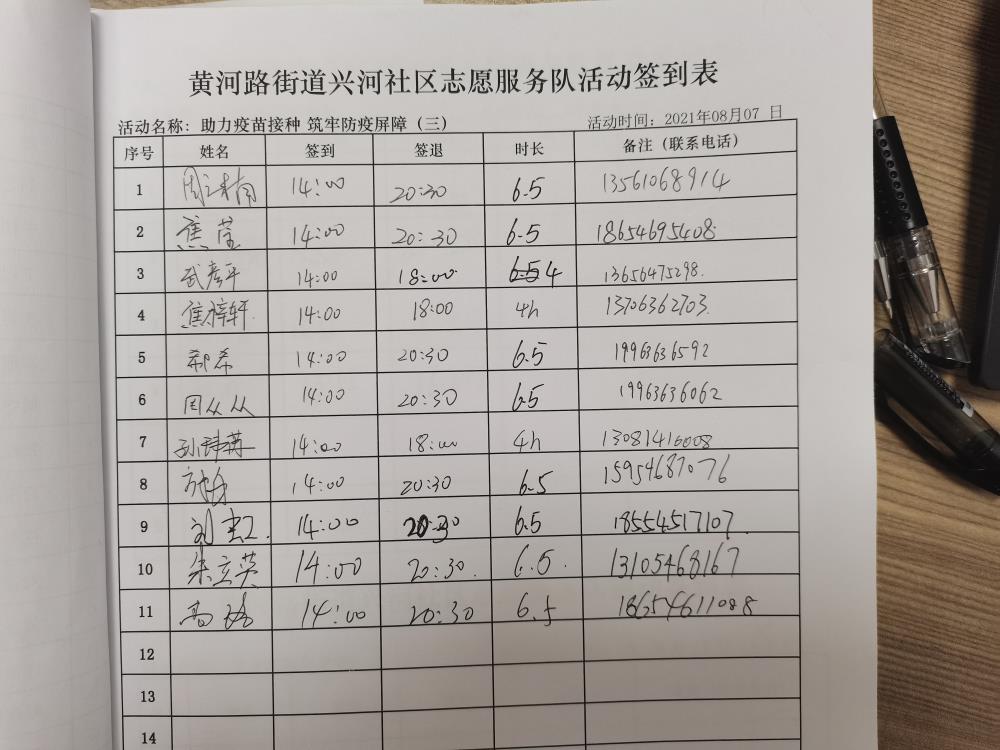 黄河路街道兴河社区志愿服务队活动签到表
活动名称：助力疫苗接种 筑牢防疫屏障（三） 活动时间：2021年08月07 日
序号 姓名 签到 签退 时长 备注（联系电话）
1 14:00 20:30 6.5 13561068914
2 焦莹 14:00 20:30 6.5 18654695408
3 武彦平 14:00 18:00 4 13656475298
4 焦梓轩 14:00 18:00 4h 13706362703
5 14:00 20:30 6.5 19963636592
6 周从从 14:00 20:30 6.5 19963636062
7 14:00 18:00 4h 13081416008
8 14:00 20:30 6.5 15954687076
9 刘宏 14:00 20:30 6.5 18554517107
10 朱立英 14:00 20:30 6.5 13105468167
11 14:00 20:30 6.5 18654611088
12
13
14